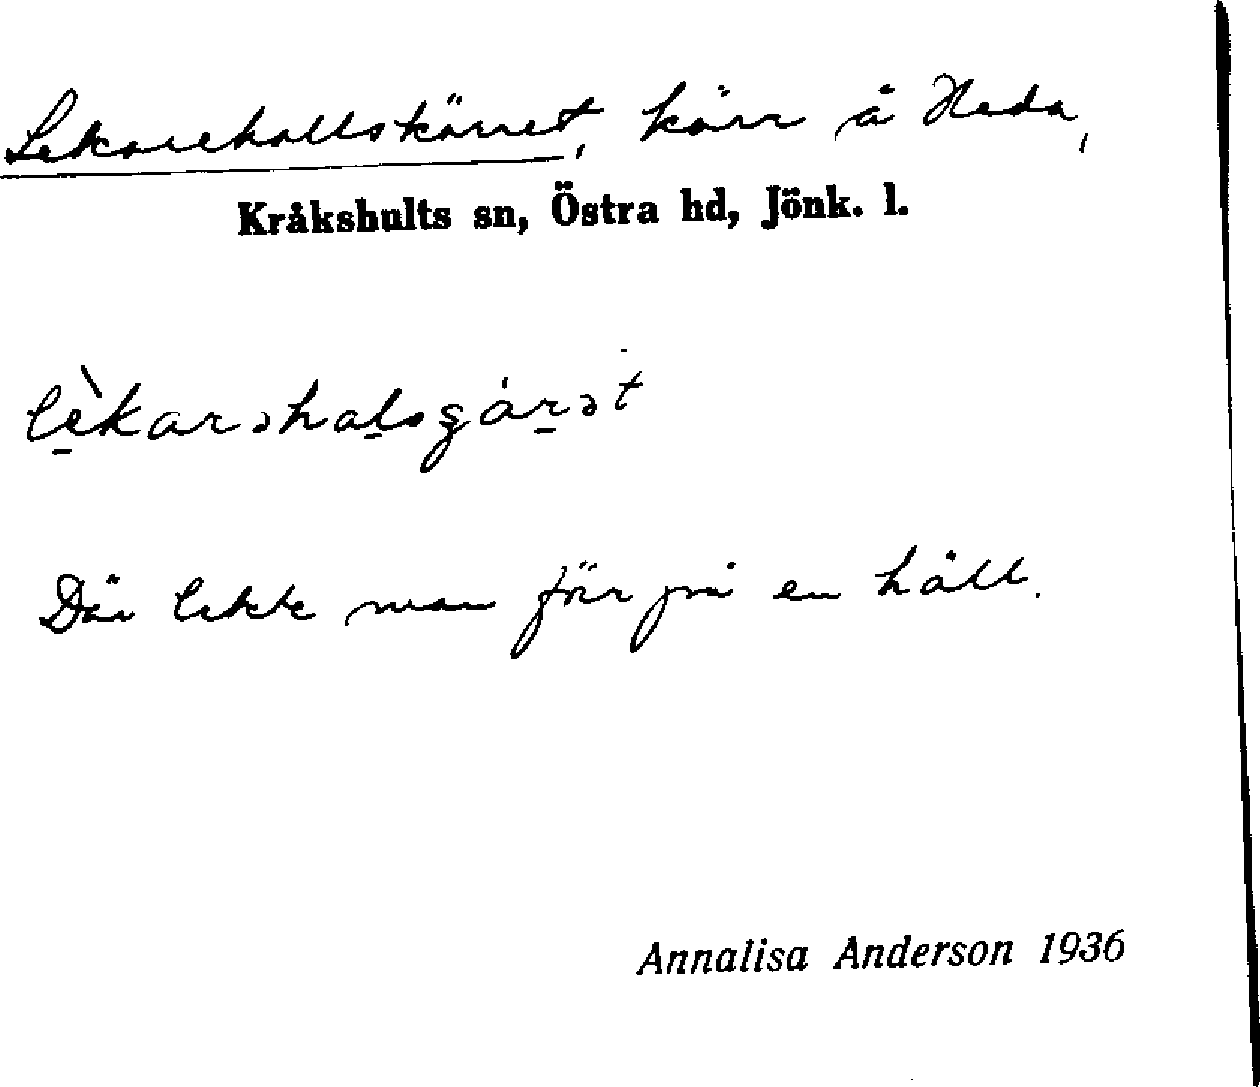 Lekarehallskärret, kärr å Heda,
Kråkshults sn, Östra hd, Jönk. l.
Där lekte man förr på en häll.
Annalisa Anderson 1936